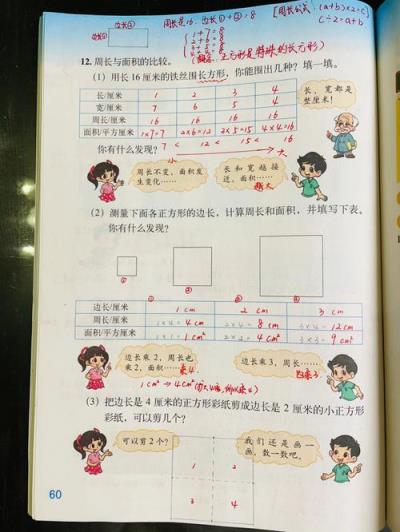 边长①
边长②
周长是16. 边长①+②=8
1+7=8
2+6=8
3+5=8
4+4=8
[周长公式:(a+b)×2=C]
C÷2=a+b
正方形是特殊的长方形)
12. 周长与面积的比较。
(1) 用长 16 厘米的铁丝围长方形,你能围出几种?填一填。
长/厘米 1 2 3 4
宽/厘米 7 6 5 4
周长/厘米 16 16 16 16
面积/平方厘米 1×7=7 2×6=12 3×5=15 4×4=16
长、宽都是整厘米!
你有什么发现? 7 < 12 < 15 < 16
小 大
周长不变,面积发
生变化……
长和宽越接
近,面积…… 越大
(2) 测量下面各正方形的边长,计算周长和面积,并填写下表。
你有什么发现?
① ② ③
边长/厘米 1 cm 2 cm 3 cm
周长/厘米 1×4=4 cm 2×4=8 cm 3×4=12 cm
面积/平方厘米 1×1=1 cm² 2×2=4 cm² 3×3=9 cm²
边长乘2,周长也
乘2,面积…… 乘4
边长乘3,周长……
1 cm² → 4 cm²
(3) 把边长是 4 厘米的正方形彩纸剪成边长是 2 厘米的小正方形
彩纸,可以剪几个?
可以剪2个?
我们还是画一
画,数一数吧。
1 2
3 4
60